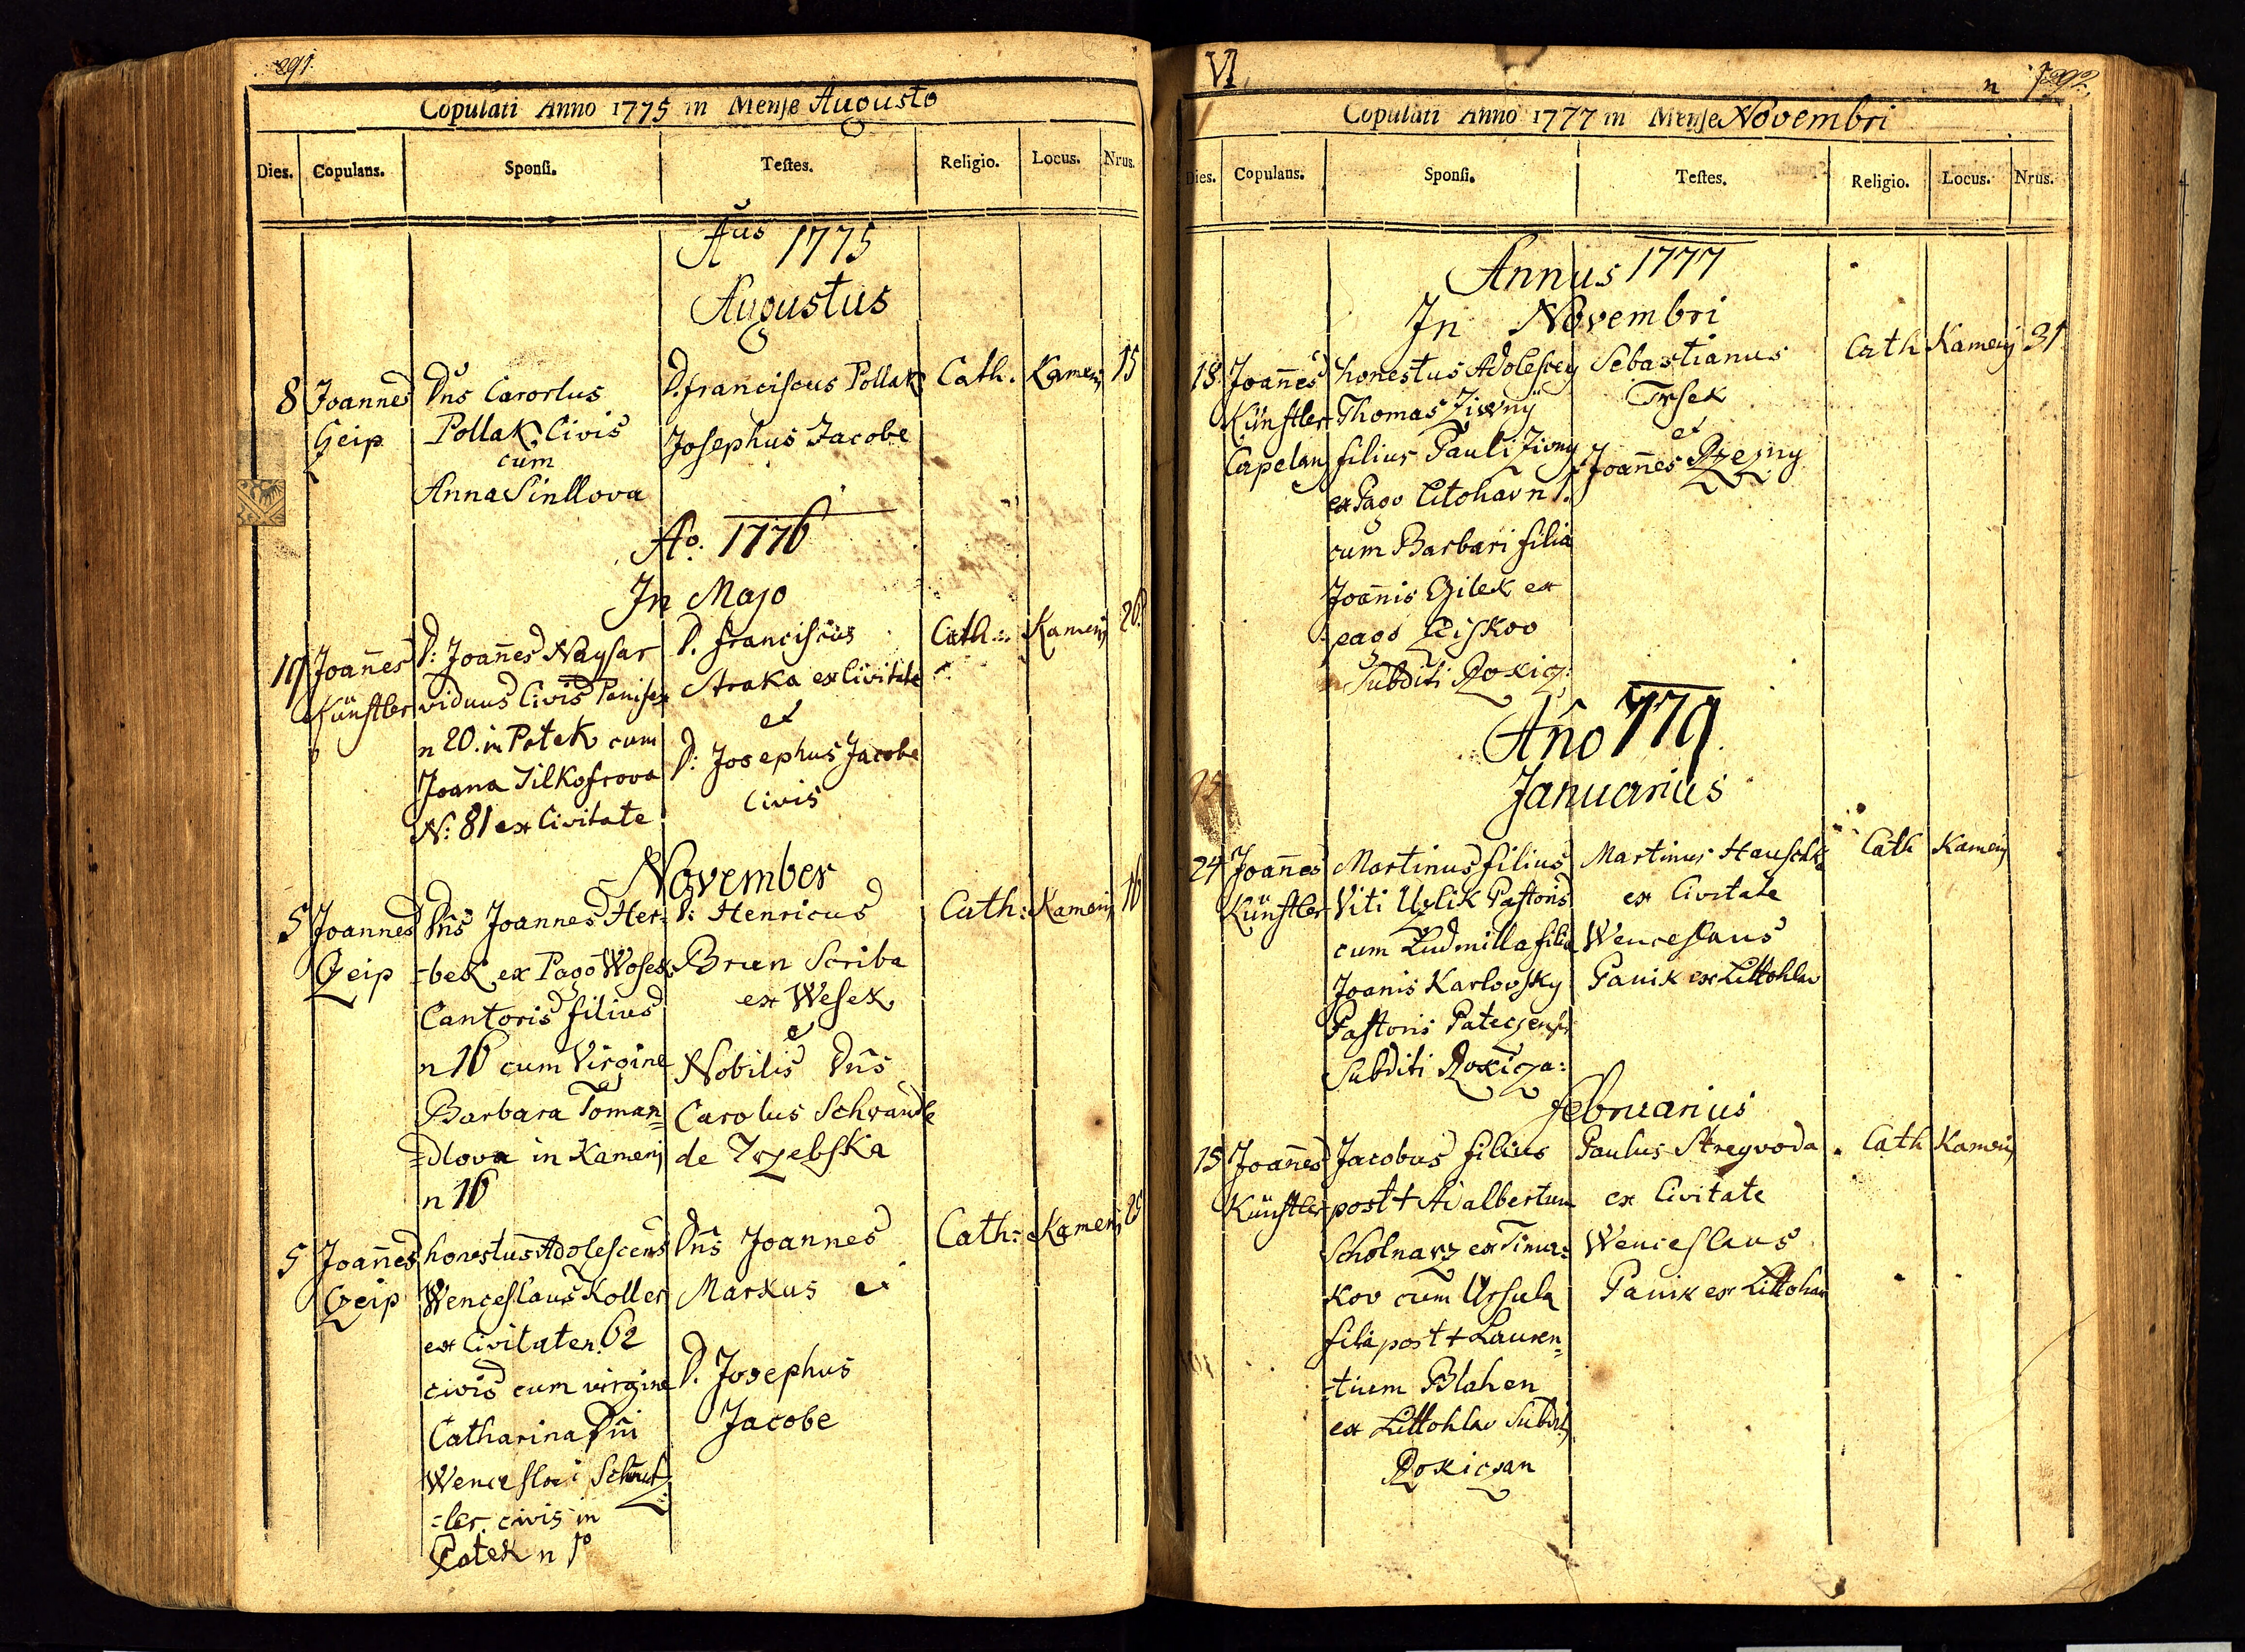 291.
Copulati Anno 1775 in Mense Augusto
Dies. Copulans. Sponsi. Testes. Religio. Locus. Nrus.
Aus 1775
Augustus
8 Joannes Geip
Dns Carorlus
Pollak, Civis
cum
Anna Sinllova
D. franciscus Pollak
Josephus Jacobe
Cath. Kamenj 15
Ao. 1776
In Majo
19 Joañes Künstler
D: Joañes Naysar
viduus Civis Panifex
n 20. in Patek cum
Joana Silkofrova
N: 81 ex Civitate
D. franciscus
Straka ex Civitate
et
D: Josephus Jacobe
Civis
Cath.. Kamenj 20.
November
5 Joannes Czeip
Dñs Joannes Her=
=bek ex Pago Wosek
Cantoris filius
n 16 cum Virgine
Barbara Toman=
=dlova in Kamenj
n 16
D: Henricus
Brun Scriba
ex Wesek
et
Nobilis Dñs
Carolus Schwandle
de Trzebska
Cath: Kamenj 16
5 Joañes Czeip
honestus Adolescens
Wenceslaus Koller
ex Civitate n. 62
civis cum virgine
Catharina Dñi
Wenceslai
=ler. civis in
Patek n
Dñs Joannes
Markus et
D. Josephus
Jacobe
Cath: Kamenj
VI
n
Copulati Anno 1777 in Mense Novembri
Dies. Copulans. Sponsi. Testes. Religio. Locus. Nrus.
Annus 1777
In Novembri
18 Joañes
Künstler
Capelan
honestus Adolescens
Thomas Ziwnÿ
filius Pauli Ziwny
ex Pago Litohav n 1.
cum Barbari filia
Joañis Czilek ex
pago
Subditi Rokicz:
Sebastianus
Trsek
et
Joañes Rzezny
Cath Kamenj 31
Año 779
Januarius
24 Joañes
Künstler
Martinus filius
Viti Uzlik Pastoris
cum Ludmilla filia
Joanis Karlovsky
Pastoris Pateczensis
Subditi Rokicza:
Martinus Hauschk
ex Civitate
Wenceslaus
Panik ex Littohlav
Cath Kamenj
februarius
15 Joañes
Künstler
Jacobus filius
post + Adalbertum
Scholnarz ex Tima=
kov cum Ursula
filia post + Lauren=
=tium Blahen
ex Littohlav Subdit
Rokiczan
Paulus Streyvoda
ex Civitate
Wenceslaus
Panik ex Littohav
Cath Kamenj